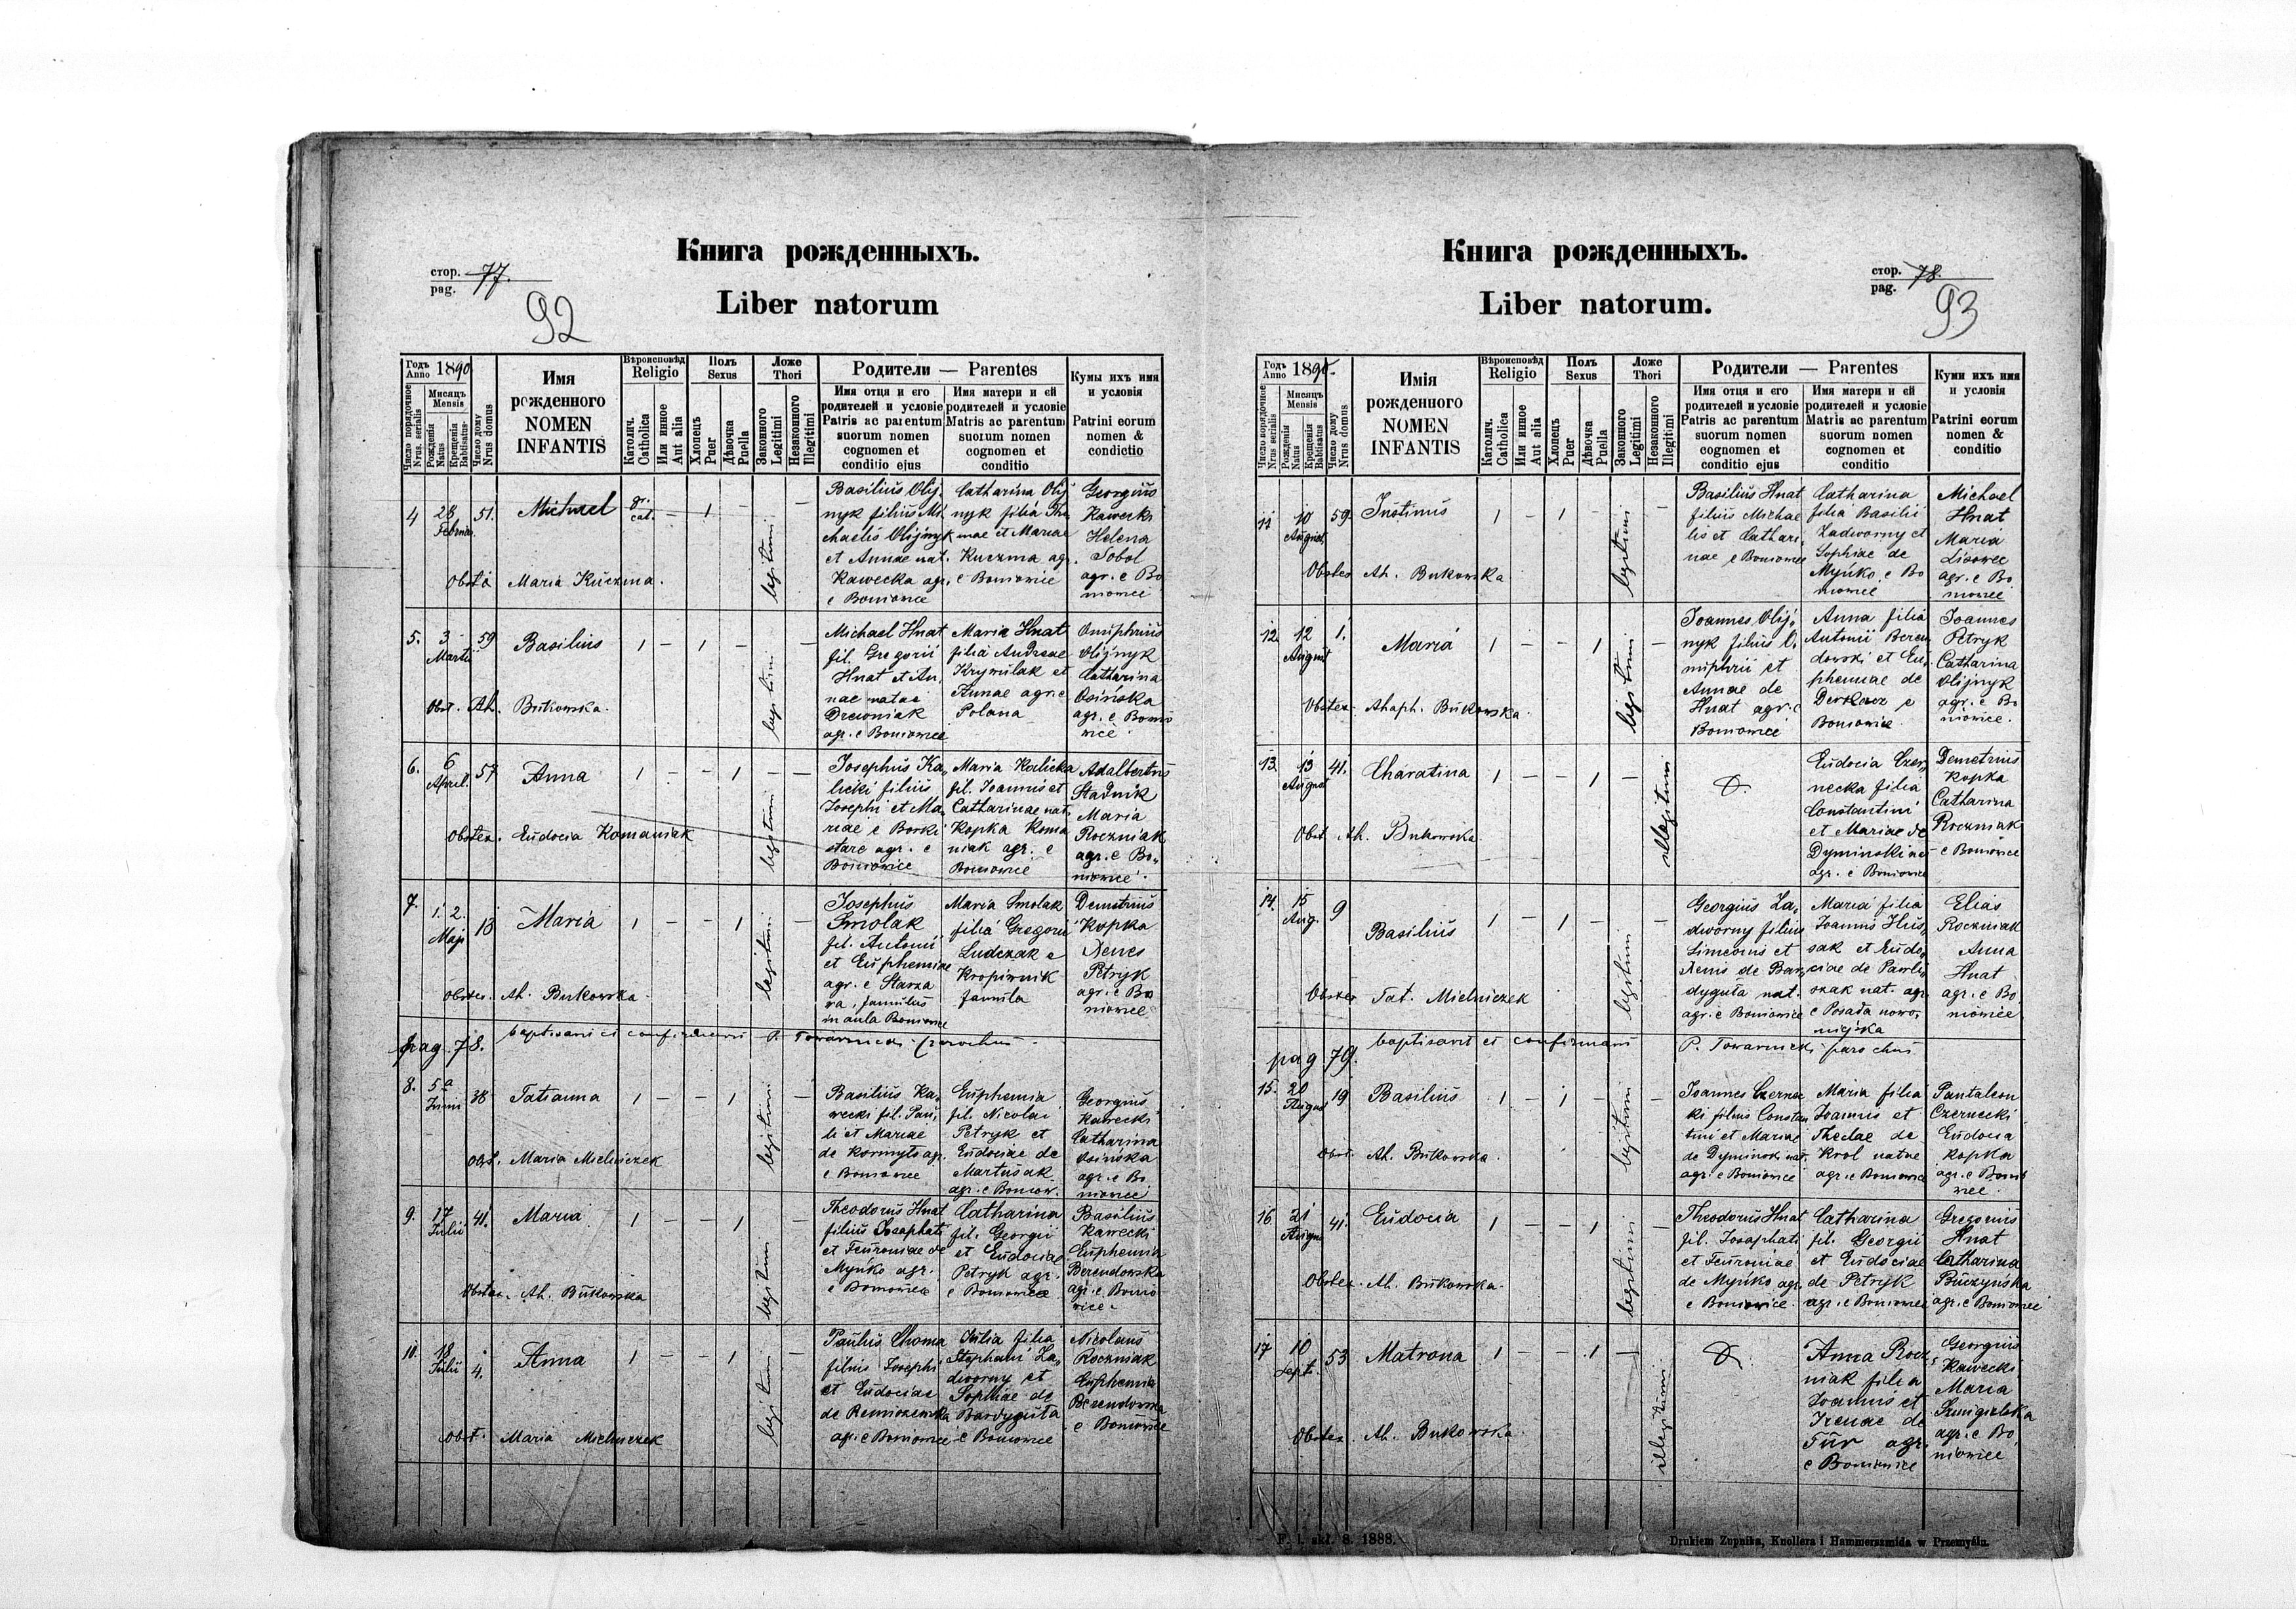 Книга рожденныхъ.
стор. 77.
pag.
92
Liber natorum
Годъ Anno 1890
Число порядочное Nrus. serialis
Мисяць Mensis
Рожденія Natus
Крещенія Babtisatus
Число дому Nrus domus
Имя рожденного
NOMEN INFANTIS
Вѣроисповѣд Religio
Католич. Catholica
Или инное Aut alia
Полъ Sexus
Хлопець Puer
Дѣвочка Puella
Ложе Thori
Законного Legitimi
Незаконного Illegitimi
Родители — Parentes
Имя отця и его родителей и условіе
Patris ac parentum suorum nomen cognomen et conditio ejus
Имя матери и ей родителей и условіе
Matris ac parentum suorum nomen cognomen et conditio
Кумы ихъ имя и условія
Patrini eorum nomen & condictio
4 28 Februar. 51. Michael gr. cat. – 1 – legitimi –
Basilius Olij-
nyk filius Mi-
chaelis Olijnyk
et Annae nat.
Kawecka agr.
e Boniowice
Catharina Olij
nyk filia Tho
mae et Mariae
Kuczma agr.
e Boniowice
Georgius
Kawecki
Helena
Sobol
agr. e Bo
niowce
Maria Kuczma.
5. 3 Martii 59 Basilius 1 – 1 – legitimi –
Michael Hnat
fil. Gregorii
Hnat et An,
nae natae
Drewniak
agr. e Boniowce
Maria Hnat
filia Andreae
Krywulak et
Annae agr. e
Polana
Onuphrius
Olijnyk
Catharina
Osińska
agr. e Bonio
wice.
Obst. Ah. Bukowska.
6. 6 April. 57 Anna 1 – – 1 legitimi –
Josephus Ka,
licki filius
Josephi et Ma,
riae e Borki
stare agr. e
Boniowice
Maria Kalicka
fil. Joannis et
Catharinae nat.
Kopka Koma
niak agr. e
Boniowice
Adalbertus
Stadnik
Maria
Roczniak
agr. e Bo,
niowce.
Obstex. Eudocia Komaniak
7. 1. 2. Maji 13 Maria 1 – – 1 legitimi –
Josephus
Smolak
fil. Antonii
et Euphemiae
agr. e Starza
va, famulus
in aula Boniowce
Maria Smolak
filia Gregorii
Ludczak e
Kropiwnik
famula
Demetrius
Kopka
Xenes
Petryk
agr. e Bo
niowce
Obstex. Ah. Bukowska.
pag. 78. baptisavi et confirmavi P. Towarnicki parochus.
8. 5a Junii 38 Tatianna 1 – – 1 legitimi –
Basilius Ka,
wecki fil. Pau,
li et Mariae
de Kormyts agr.
e Boniowce
Euphemia
fil. Nicolai
Petryk et
Eudociae de
Martusak
agr. e Boniow.
Georgius
Kawecki
Catharina
Osińska
agr. e Bo
niowce
Obst. Maria Mielniczek
9. 17 Julii 41. Maria 1 – – 1 legitimi –
Theodorus Hnat
filius Josaphati
et Feuroniae de
Myńko agr.
e Boniowce
Catharina
fil. Georgii
et Eudociae
Petryk agr.
e Boniowce
Basilius
Kawecki
Euphemia
Berendowska
agr. e Bonio
wice.
Obstex. Ah. Bukowska
10. 18 Julii 4. Anna 1 – – 1 legitimi –
Paulus Choma
filius Josephi
et Eudociae
agr. e Boniowce
Julia filia
Stephani Za,
dworny et
Sophiae de
Bardyguła
e Boniowce
Nicolaus
Roczniak
Euphemia
Berendowska
e Boniowce
Obst. Maria Mielniczek
Книга рожденныхъ.
стор. 78.
pag.
93
Liber natorum.
Годъ Anno 1890.
Число порядочное Nrus serialis
Мисяць Mensis
Рожденія Natus
Крещенія Babtisatus
Число дому Nrus domus
Имія рожденного
NOMEN INFANTIS
Вѣроисповѣд Religio
Католич. Catholica
Или инное Aut alia
Полъ Sexus
Хлопець Puer
Дѣвочка Puella
Ложе Thori
Законного Legitimi
Незаконного Illegitimi
Родители — Parentes
Имя отця и его родителей и условіе
Patris ac parentum suorum nomen cognomen et conditio ejus
Имя матери и ей родителей и условіе
Matris ac parentum suorum nomen cognomen et conditio
Куми ихъ имя и условія
Patrini eorum nomen & conditio
11 10 August. 59. Justinus 1 – 1 – legitimi –
Basilius Hnat
filius Michae
lis et Cathari,
nae e Boniowce
Catharina
filia Basilii
Zadworny et
Sophiae de
Myńko e Bo
niowce
Michael
Hnat
Maria
Lisowec
agr. e Bo
niowce
Obstex Ah. Bukowska
12. 12 August 1. Maria 1 – – 1 legitimi –
Joannes Olij,
nyk filius O,
nuphrii et
Annae de
Hnat agr. e
Boniowce
Anna filia
Antonii Beren
dowski et Eu,
phemiae de
Derkacz e
Boniowice
Joannes
Petryk
Catharina
Olijnyk
agr. e Bo
niowice.
Obstex. Ahaph. Bukowska.
13. 13 August 41. Charatina 1 – – 1 – illegitimi
Eudocia Czer,
necka filia
Constantini
et Mariae de
agr. e Boniowice
Demetrius
Kopka
Catharina
Roczniak
e Boniowce
Obst. Ah. Bukowska.
14. 15 Aug. 9 Basilius 1 – 1 – legitimi –
Georgius Za,
dworny filius
Simeonis et
Xenis de Bar,
dyguła nat.
agr. e Boniowce
Maria filia
Joannis Hus,
sak et Eudo,
ciae de Pawli,
szak nat. agr.
e Posada nowo,
miejska
Elias
Roczniak
Anna
Hnat
agr. e Bo,
niowce
Obstex Tat. Mielniczek
pag. 79. baptisavit et confirmavit P. Towarnicki parochus
15. 20 August 19 Basilius 1 – 1 – legitimi –
Joannes Czernec
ki filius Constan
tini et Mariae
de Dyminski nat.
agr. e Boniowce
Maria filia
Joannis et
Theclae de
Krol natae
agr. e Boniowce
Pantaleon
Czernecki
Eudocia
Kopka
agr. e Bonio
wce.
Obst. Ah. Bukowska.
16. 21 August 41. Eudocia 1 – – 1 legitimi –
Theodorus Hnat
fil. Josaphati
et Feuroniae
de Myńko agr.
e Boniowice.
Catharina
fil. Georgii
et Eudociae
de Petryk
agr. e Boniowce
Gregorius
Hnat
Catharina
Buczyńska
agr. e Boniowce
Obstex. Ah. Bukowska.
17 10 Sept. 53 Matrona 1 – – 1 – illegitimi
Anna Rocz,
niak filia
Joannis et
Irenae de
Tur agr.
e Boniowice
Georgius
Kawecki
Maria
agr. e Bo
niowce
Obstex. Ah. Bukowska.
F. l. skł. 8. 1888.
Drukiem Zupnika, Knollera i Hammerszmida w Przemyślu.